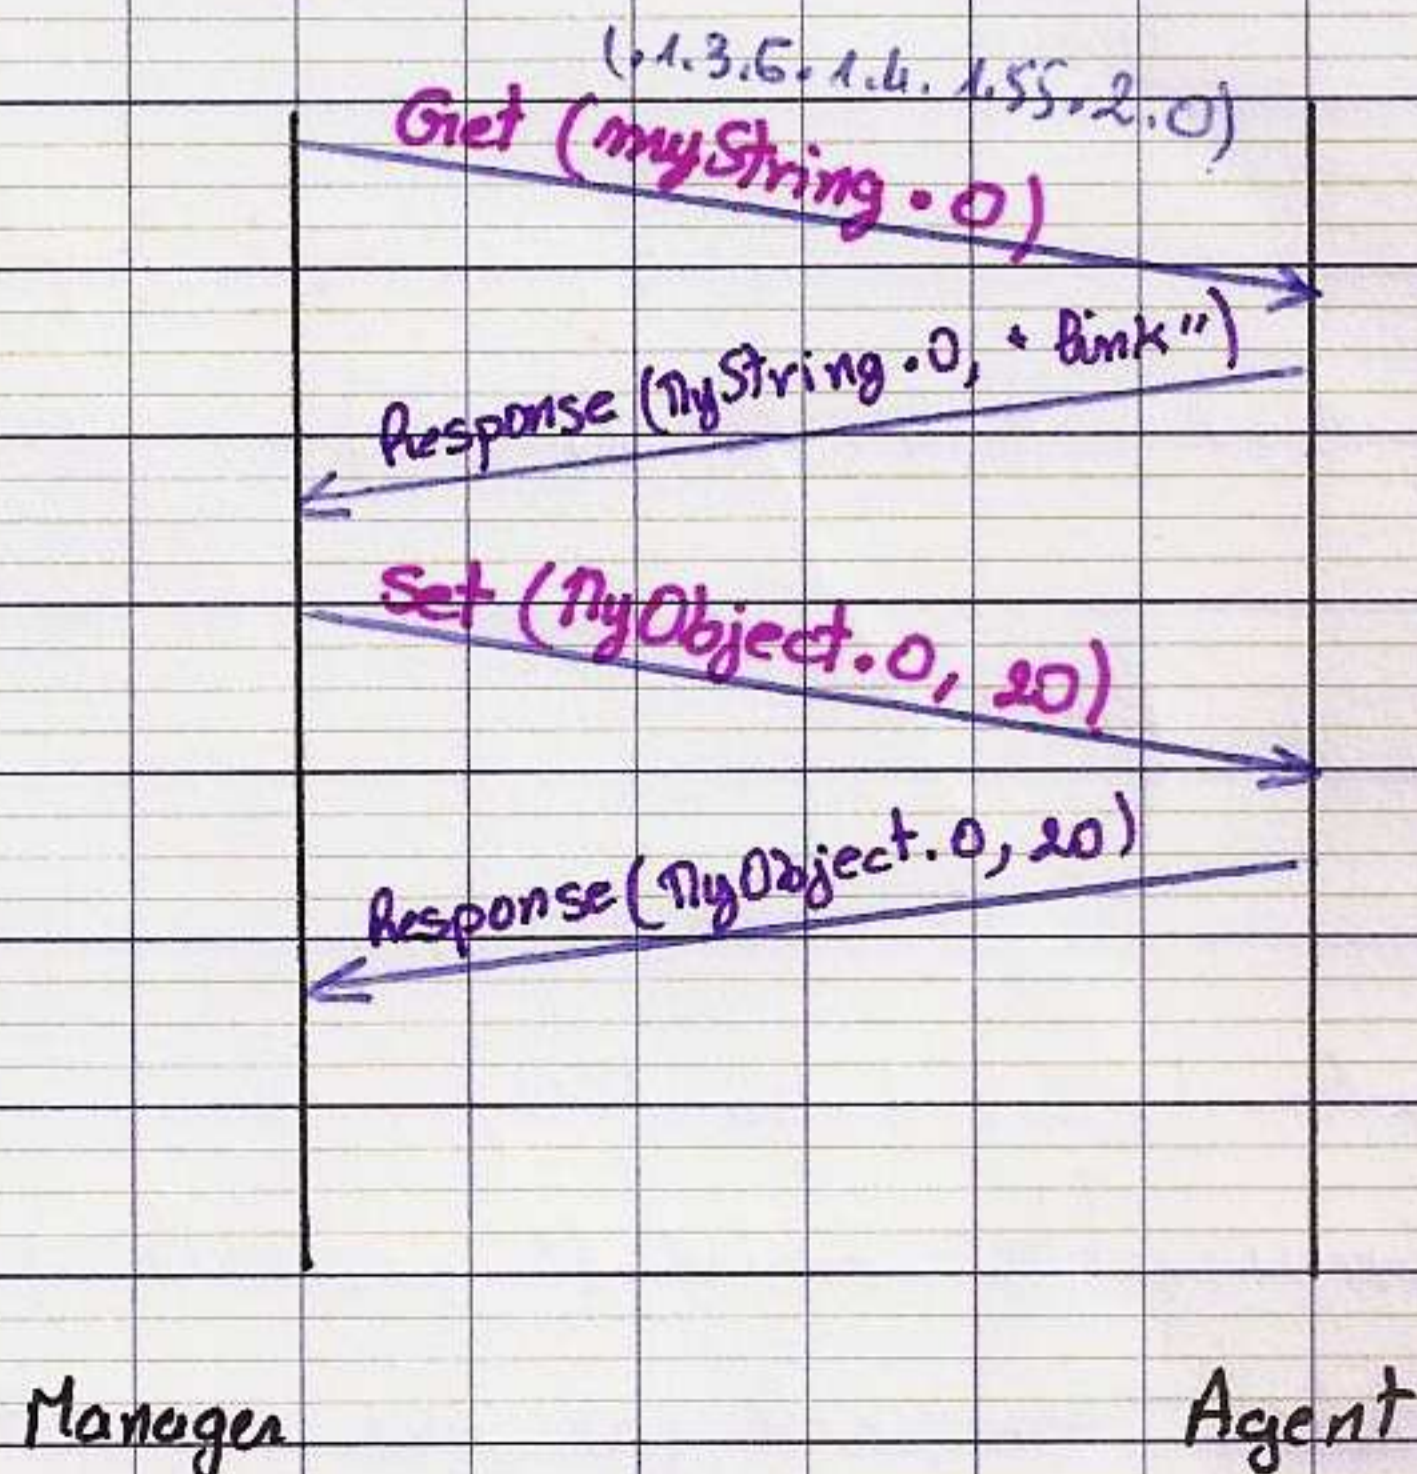 (.1.3.6.1.4.1.55.2.0)
Get (myString.0)
Response (MyString.0, "link")
Set (MyObject.0, 20)
Response (MyObject.0, 20)
Manager
Agent